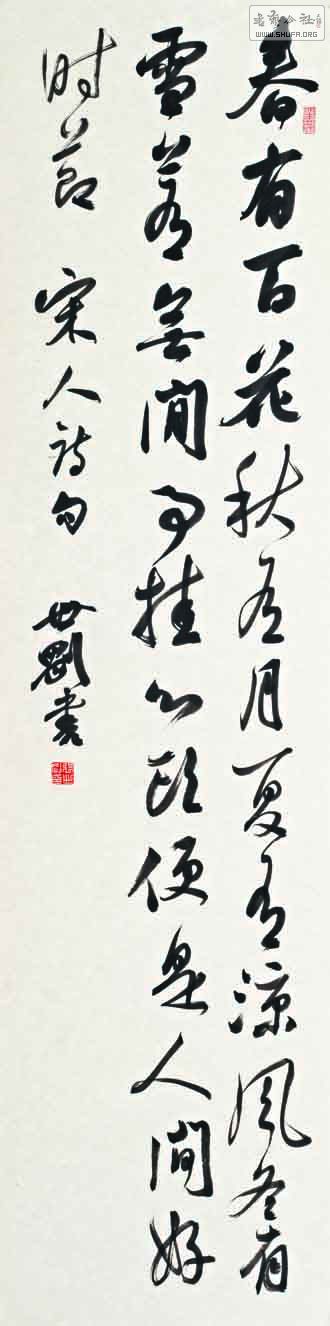 春有百花秋有月夏有凉风冬有
雪若无闲事挂心头便是人间好
时节 宋人诗句 世刚书
书艺公社
WWW.SHUFA.ORG